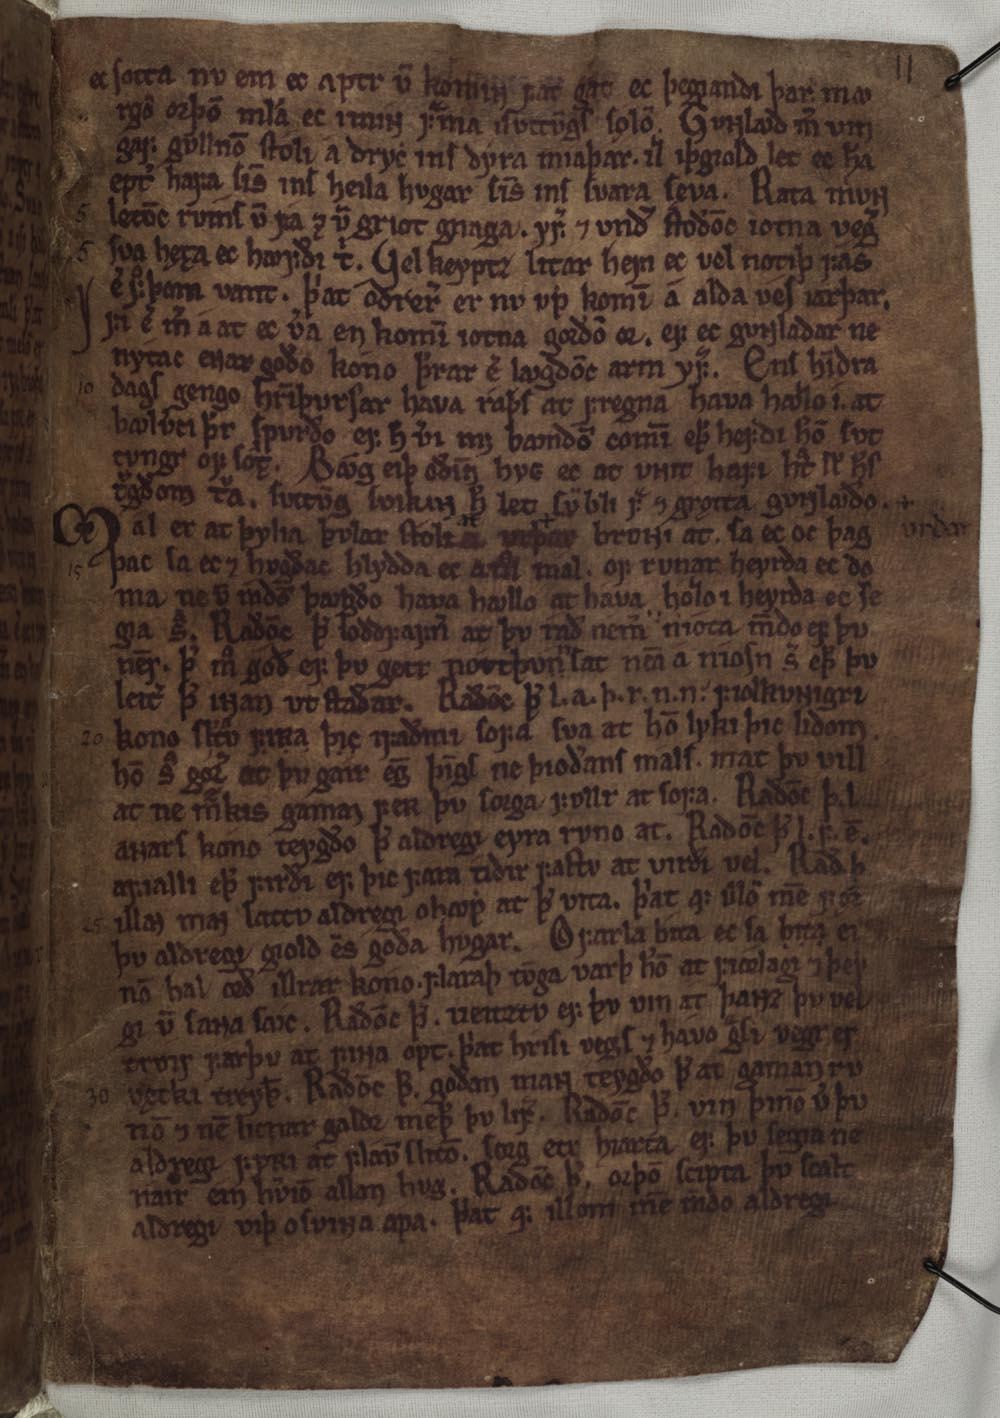 11
ec sotta nv em ec aptr v̄ komiɴ fát gat ec þegiandi þar. mꜹ
rgō orþō mlá ec iminn f̄ma isuttvgs sꜹlō. Gvnlꜹd m̄ vm
gaf. gvllnō stoli a dryc ins dyra miaþar. ill iþgiold let ec h̄a
ept' hafa sīs ins heila hvgar sīs ins svara seva. Rata mvɴ
5 letōc rvms v̄ fa ⁊ v̄ griot gnaga. yf̄ ⁊ vnd' stodōc iotna veg'
5 sva hętta ec hꜹfdi t'. Vel keyptz litar hefi ec vel notiþ fas
ē f°þom vant. þ'at odrer' er nv vp komī á alda ves iarþar.
If ē m̄ á at ec v'a en komī iotna gordō ór. ef ec gvɴladar ne
nytac eɴar godo kono þ'rar ē lꜹgdōc arm yf̄. Ens hīdra
10 dags gengo hrīþvrsar hava raþs at fregna hava hꜹllo i. at
bꜹlv'ci þr spurdo ef h v'i m; bꜹndō comī eþ hefdi hō sut
tvngr of sót. Bꜹg eiþ odiɴ hyg ec at vnit hafi hu' sk hs
t'gdom t'a. svttvg svikiɴ h let svbli f' ⁊ grotta gvɴlꜹdo.
Mal er at þylia þvlar stoli a vrþar brvɴi at. sa ec oc þag +vrdar
15 þac sa ec ⁊ hvgdac hlydda ec a m̄ mal. of rvnar heyrda ec dō
ma ne v̄ radō þꜹgdo hava hꜹllo at hava hꜹllo i heyrda ec se
gia sá. Radōc þ' loddfafn' at þv rad nem' niota m̄do ef þv
nēr. þ' mō god ef þv getr nott þv risat nēa a niosn s' eþ þv
leit' þ' iɴan vt stadar. Radōc þ' l. a. þ. r. n. n. fiolkvɴigri
20 kono skv'a fiɴa þic i fadmi sofa sva at hō lyki þic lidom.
hō s' gor' at þv gair eg þigs ne þiodans mals. mat þv vill
at ne m̄kis gaman fer þv sorga fvllr at sofa. Radōc þ. l.
aɴars kono teygdo þ' aldregi eyra rvno at. Radōc þ' l. f. ē.
afialli eþ firdi ef þic fara tidir fastv at virdi vel. Rad. þ
25 illan maɴ lattv aldregi ohꜹpp at þ' vita. þ'at af illō m̄e fær
þv aldregi giold ēs goda hvgar. Ofarla bita ec sa haɴ ei
nō hal ord illrar kono. flaraþ tvga varþ hō at fiorlagi ⁊ þey
gi v̄ saɴa sꜹc. Radōc þ. veiztv ef þv vin at þaɴz þv vel
trvir farþv at fiɴa opt. þ'at hrisi vegs ⁊ havo g'si vegr er
30 vętki trꜹþ'. Radōc þ. godan maɴ teygdo þ' at gamanrv
nō ⁊ nē licnar galdr meþ þv lif'. Radōc þ. vin þinō v' þv
aldregi fyri at flꜹm̄ slitō. sorg etr hiarta ef þv segia ne
nair eīn hv'iō allan hvg. Radōc þ. orþō scipta þv scalt
aldregi viþ osviɴa apa. þ'at af illom m̄e m̄do aldregi